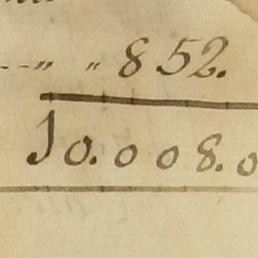 --„ „ 852.
10.008.0